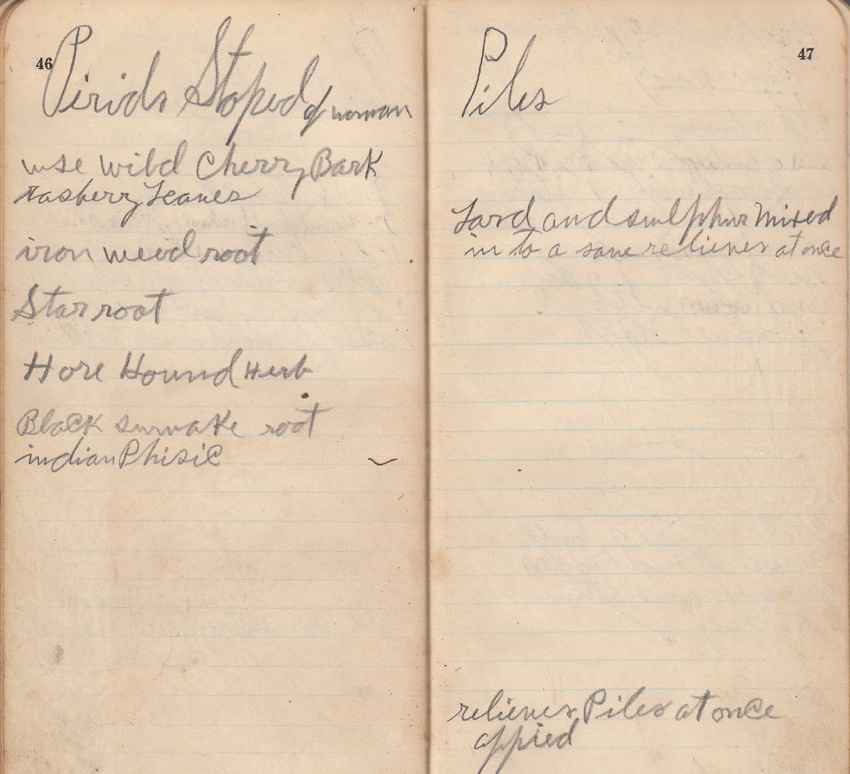 46
Pirids Stoped of woman
use wild Cherry Bark
rasberry Leaves
iron weed root
Star root
Hore Hound Herb
Black snnake root
indian Phisic
47
Piles
Lard and sulphur mixed
in to a save relieves at once
relieves Piles at once
appied